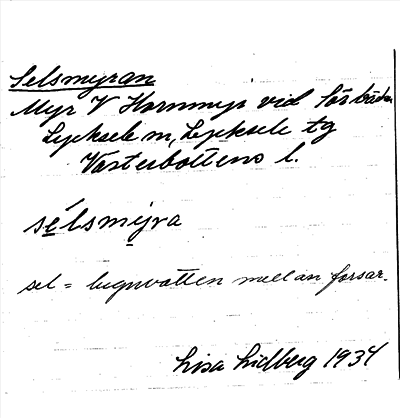 Selsmyran
Myr V Hornmyr vid Sörbäcken
Lycksele sn, Lycksele tg
Västerbottens l.
sélsmyra
sel = lugnvatten mellan forsar.
Lisa Lidberg 1934